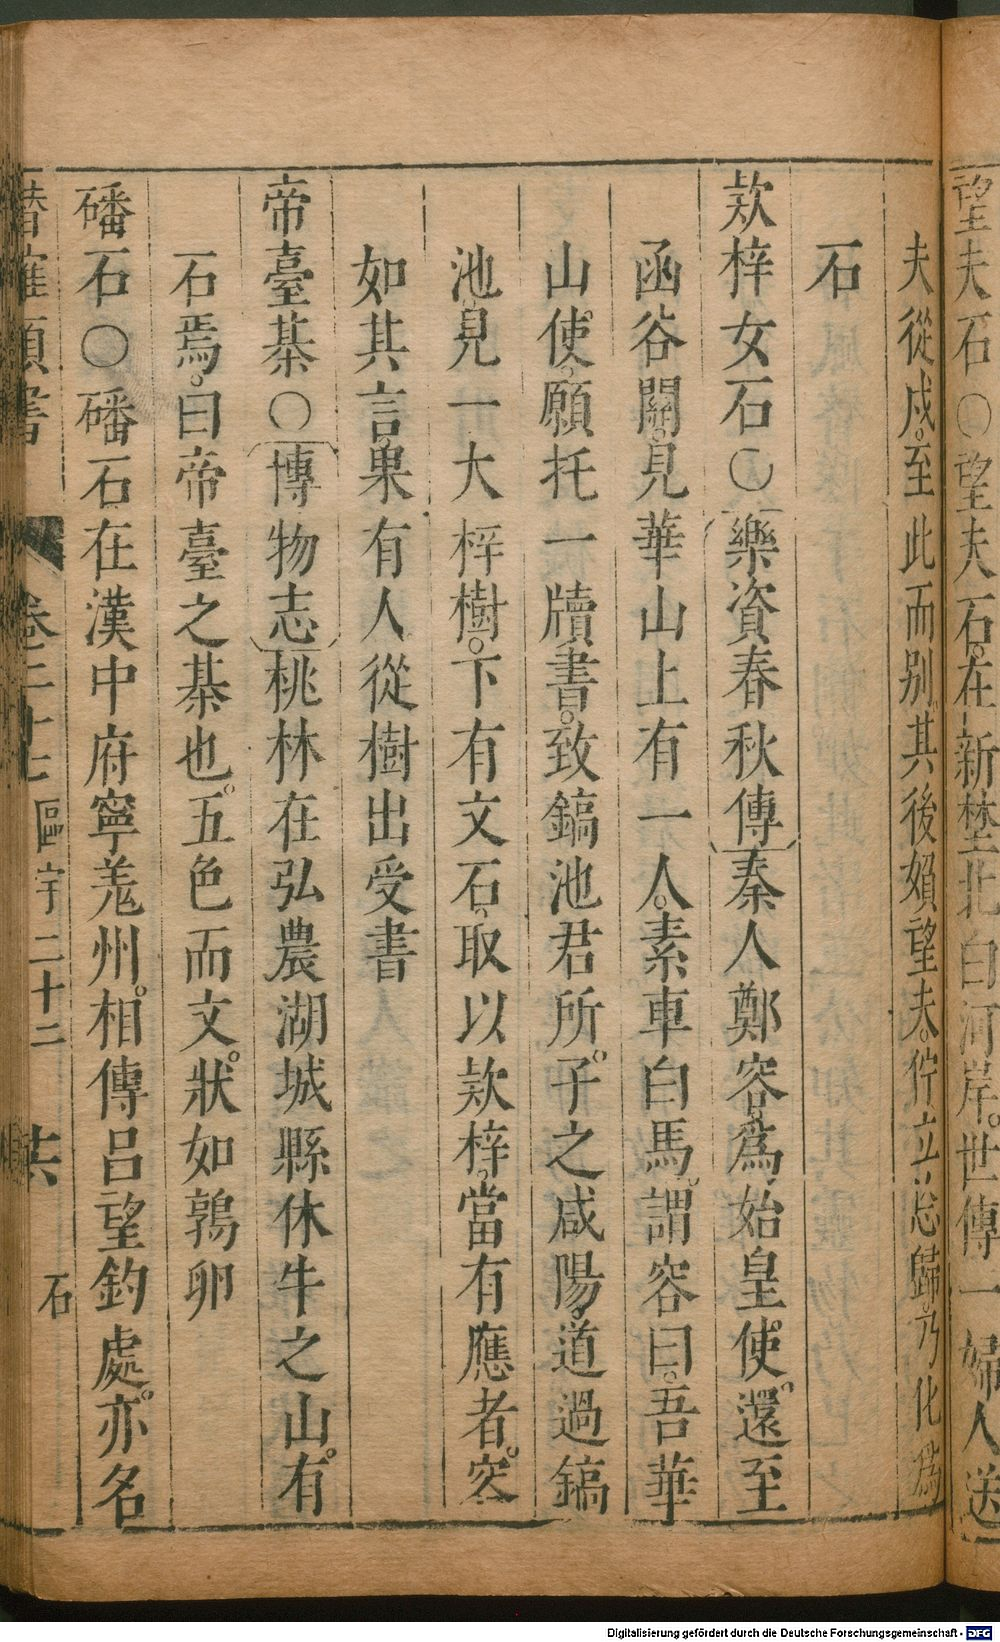 望夫石○望夫石。在新埜北白河岸。世傳一婦人送
夫從戍。至此而别。其後頻望夫。佇立忘歸。乃化爲
石
欵梓女石○樂資春秋傳秦人鄭容。爲始皇使。還至
函谷關。見華山上有一人。素車白馬。謂容曰。吾華
山使。願托一牘書。致鎬池君所。子之咸陽。道過鎬
池。見一大梓樹。下有文石。取以欵梓。當有應者。容
如其言。果有人從樹出受書
帝臺棊○博物志桃林在弘農湖城縣休牛之山。有
石焉。曰帝臺之棊也。五色而文。狀如鶉卵
磻石○磻石在漢中府寧羗州。相傳呂望釣處。亦名
潛確類書 卷二十七 區宇二十二 石
Digitalisierung gefördert durch die Deutsche Forschungsgemeinschaft - DFG